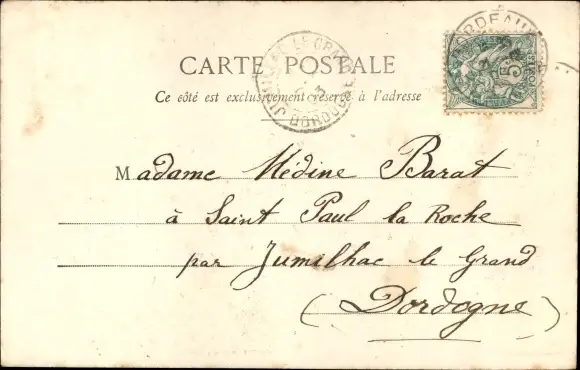 BORDEAU
JUMILHAC LE GRAND
DORDOGNE
CARTE POSTALE
Ce côté est exclusivement réservé à l'adresse
Madame Médine Barat
à Saint Paul la Roche
par Jumilhac le Grand
(Dordogne)